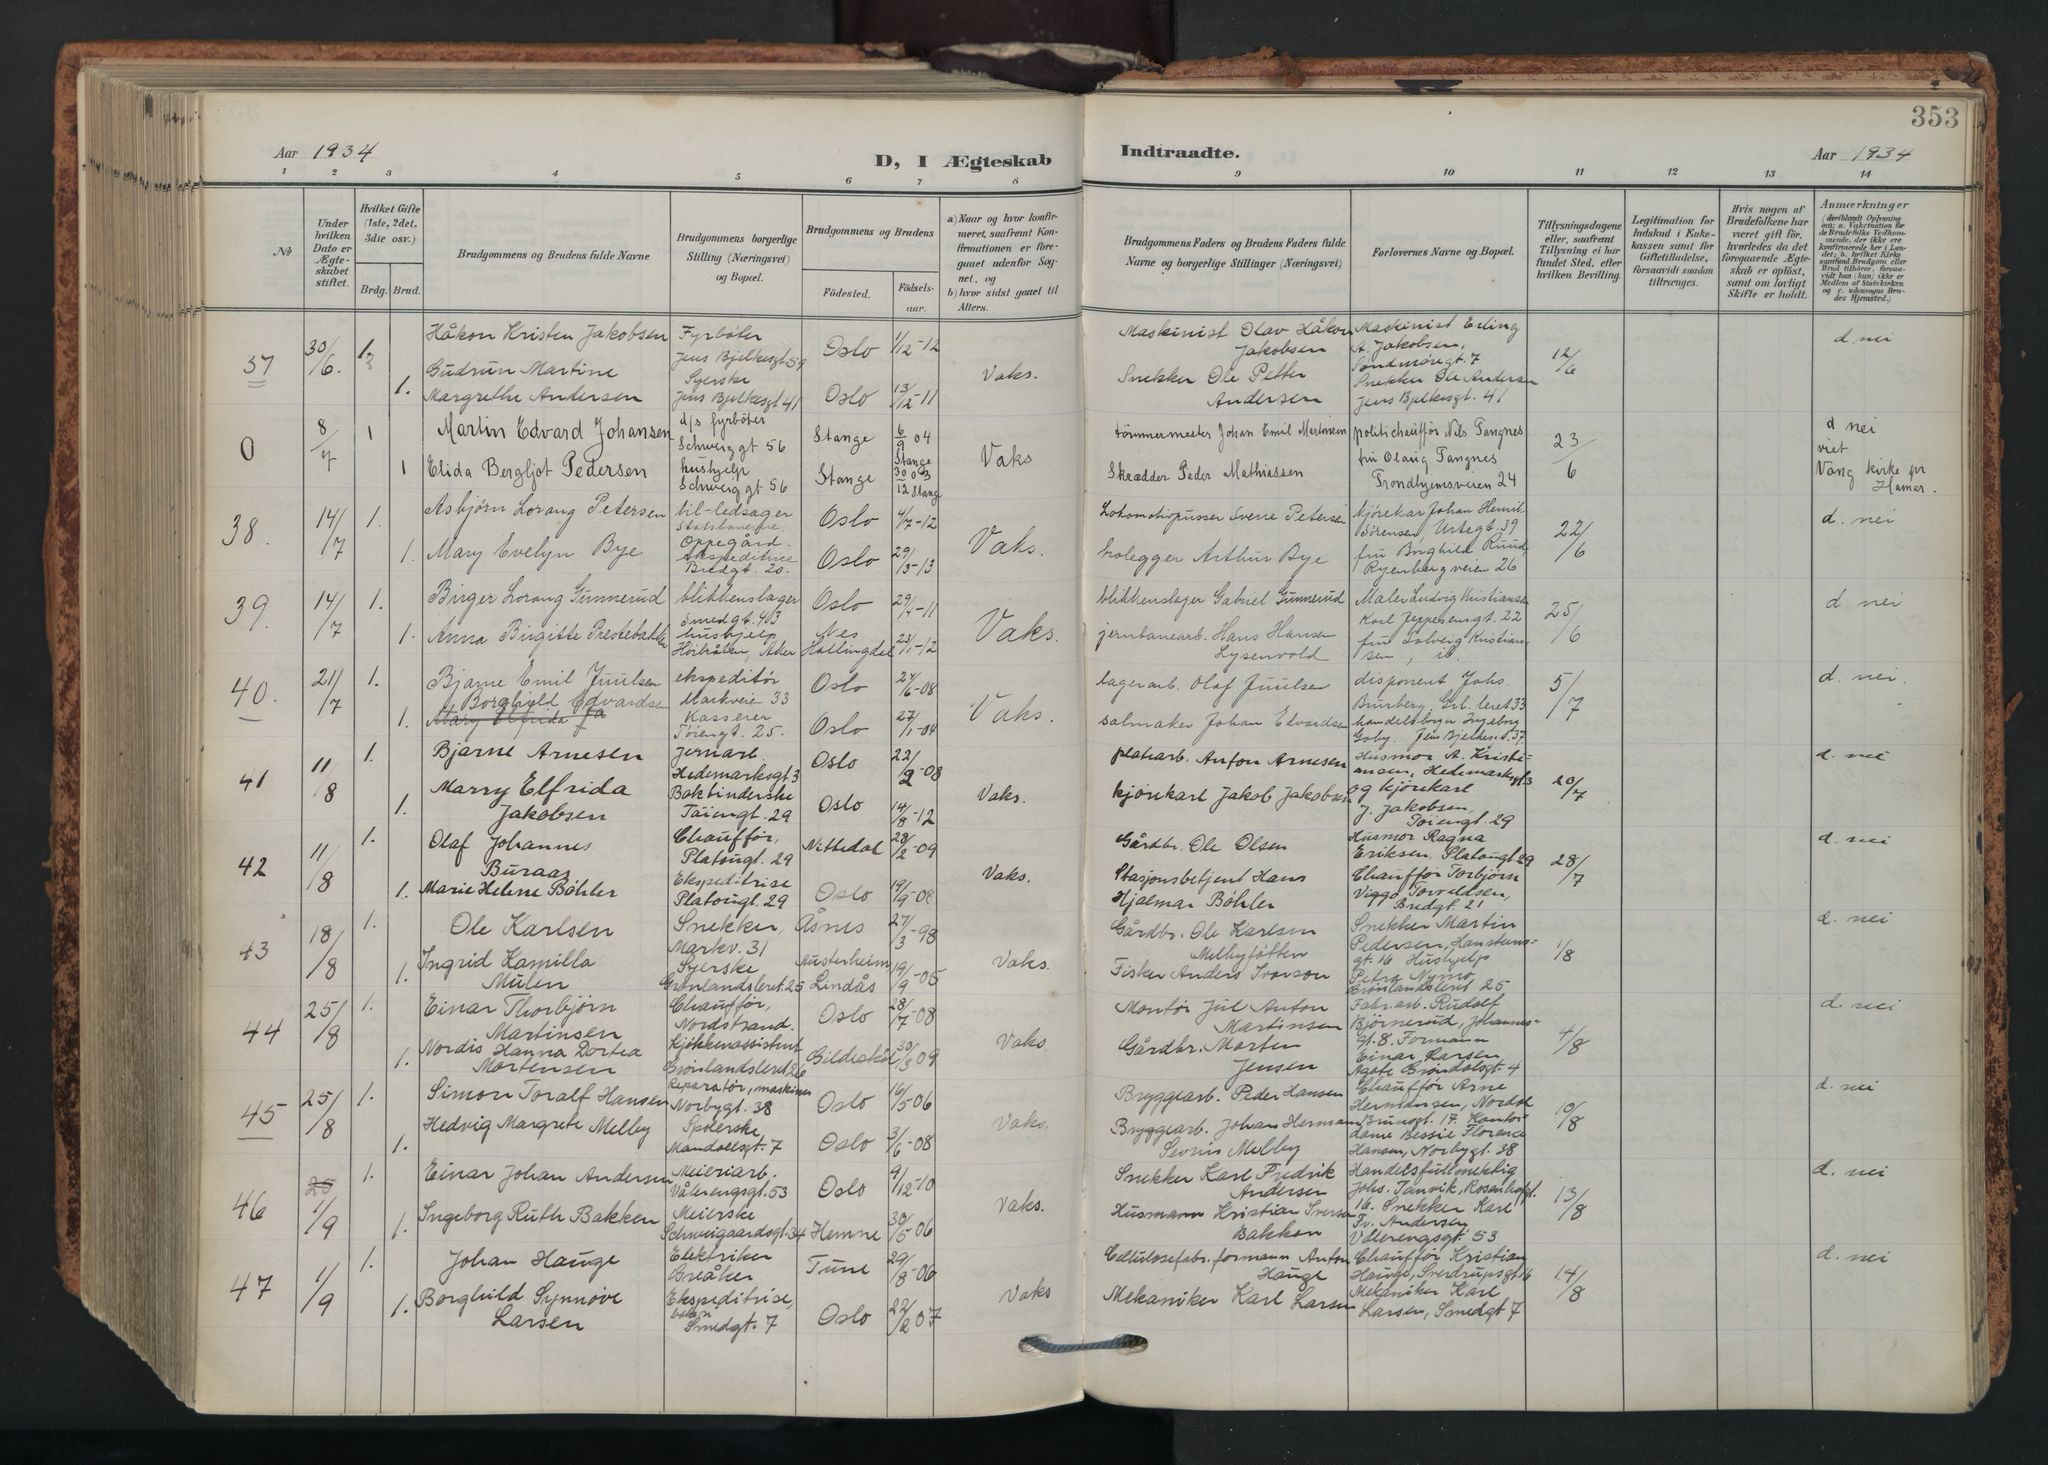 353
Aar 1934
D, I Ægteskab
Indtraadte.
Aar 1934
1 2 3 4 5 6 7 8 9 10 11 12 13 14
No
Under hvilken Dato er Ægteskabet stiftet.
Hvilket Gifte (1ste, 2det, 3die osv.)
Brdg. Brud.
Brudgommens og Brudens fulde Navne
Brudgommens borgerlige Stilling (Næringsvei) og Bopæl.
Brudgommens og Brudens
Födested.
Födsels-aar.
a) Naar og hvor konfirmeret, saafremt Konfirmationen er foregaaet udenfor Sognet, og
b) hvor sidst gaaet til Alters.
Brudgommens Faders og Brudens Faders fulde Navne og borgerlige Stillinger (Næringsvei)
Forlovernes Navne og Bopæl.
Tillysningsdagene eller, saafremt Tillysning ei har fundet Sted, efter hvilken Bevilling.
Legitimation for Indskud i Enkekassen samt for Giftetilladelse, forsaavidt saadan tiltrænges.
Hvis nogen af Brudefolkene har været gift för, hvorledes da det foregaaende Ægteskab er oplöst, samt om lovligt Skifte er holdt.
Anmærkninger
37 30/6. 1. Håkon Kristen Jakobsen Fyrbøter Jens Bjelkesgt 59 Oslo 1/12-12
1. Gudrun Martine Margrethe Andersen Syerske Jens Bjelkesgt 41 Oslo 13/12-11 Vaks.
Maskinist Olav Håkon Jakobsen
Snekker Ole Petter Andersen
Maskinist Erling A. Jakobsen, Søndmøregt 7
Snekker Ole Andersen Jens Bjelkesgt. 41
12/6 d nei
0 8/7 1 Martin Edvard Johansen d/s fyrbøter Schweiggt 56 Stange 6/9 04 Stange
1 Elida Bergljot Pedersen hushjelp Schweiggt 56 Stange 30/12 03 Stange Vaks
tømmermester Johan Emil Martinsen
Skrædder Peder Mathiassen
politichauffør Nils Tangnes
fru Olaug Tangnes Trondhjemsveien 24
23/6 d nei viet Vang kirke pr Hamar.
38. 14/7 1. Asbjørn Lorang Petersen bil-ledsager Oppegård. Oslo 4/7-12
1. Mary Evelyn Bye ekspeditrice Bredgt. 20. Oslo 29/3-13 Vaks.
Lokomotivpusser Sverre Petersen
Arthur Bye
kjørekar Johan Henrik Sørensen, Urtegt. 39
fru Borghild Ruud, Ryenbergveien 26
22/6 d. nei
39. 14/7 1. Birger Lorang Gunnerud blikkenslager Smedgt. 43 Oslo 29/4-11
1. Anna Birgitte Prestebakke hushjelp Høibråten, Aker Nes Hallingdal 23/1-12 Vaks.
blikkenslager Gabriel Gunnerud
jernbanearb. Hans Hansen Lysenvold
Maler Ludvig Kristiansen Karl Jeppesensgt. 22
fru Solveig Kristiansen, ib.
25/6 d. nei
40. 21/7 1. Bjarne Emil Juulsen ekspeditør Markveie 33 Oslo 27/6-08
1. Borghild Edvardsen Mary Elfrida Ja Kasserer Tøiengt. 25. Oslo 27/1-04 Vaks.
lagerarb. Olaf Juulsen
salmaker Johan Edvardsen
disponent Johs. Brurberg, Grl. leret 33
handelsborger Ingeborg Goby. Jens Bjelkes. 37
5/7 d. nei.
41 11/8 1. Bjarne Arnesen Jernarb. Hedemarksgt 3 Oslo 22/2-08
1. Marry Elfrida Jakobsen Bokbinderske Töiengt. 29 Oslo 14/8-12 Vaks.
platearb. Anton Arnesen
kjørekarl Jakob Jakobsen
Husmor A. Kristiansen, Hedemarksgt 3
og kjörekarl J. Jakobsen, Töiengt. 29
20/7 d. nei
42 11/8 1. Olaf Johannes Buraas Chauffør, Platougt. 29 Nittedal 28/2-09
1. Marie Helene Bøhler Ekspeditrise Platougt. 29 Oslo 19/9-08 Vaks.
Gårdbr. Ole Olsen
Stasjonsbetjent Hans Hjalmar Bøhler
Husmor Ragna Eriksen, Platougt 29
Chauffør Torbjörn Viggo Torvildsen, Bredgt. 21
28/7 d. nei
43 18/8 1. Ole Karlsen Snekker, Markv. 31 Åsnes 27/3-98
1. Ingrid Kamilla Mulen Syerske Grønlandsleret 25 Austerheim Lindås 19/9-05 Vaks.
Gårdbr. Ole Karlsen Melbyføtten
Fisker Anders Iverson
Snekker Martin Pedersen, Hanstensgt. 16 Hushjelp
Petra Nymo Grønlandsleret 25
1/8 d. nei
44 25/8 1. Einar Thorbjörn Martinsen Chauffør, Nordstrand. Oslo 28/7-08
1. Nordis Hanna Dortea Mortensen Kjøkkenassistent Grønlandsleret 26 Gildeskål 30/3 09 Vaks
Montör Jul Anton Martinsen
Gårdbr. Morten Jensen
Fabr. arb. Rudolf Björnerud, Johannesgt. 8. Formann
Einar Larsen, Agate Gröndalsgt 4
4/8 d. nei
45 25/8 1. Simon Toralf Hansen Reparatør, maskiner Norbygt. 38 Oslo 16/5 06
1. Hedvig Margrete Melby Spolerske Mandalsgt. 7 Oslo 3/6-08 Vaks.
Bryggearb. Peder Hansen
Bryggearb. Johan Hermann Sevrin Melby
Chauffør Arne Hermansen, Nordal Brunsgt. 17. Kontordame Bessie Florence Hansen, Norbygt. 38
10/8 d. nei
46 25 1/9 1. Einar Johan Andersen Meieriarb. Vålerengsgt. 53 Oslo 9/12-10
1. Ingeborg Ruth Bakken Meierske Schweigaardsgt. 34 Hemne 30/5-06 Vaks.
Snekker Karl Fredrik Andersen
Husmann Kristian Iversen Bakken
Handelsfullmektig Johs. Tanvik, Rosenhofgt. 16. Snekker Karl Fr. Andersen Vålerengsgt. 53
13/8 d. nei
47 1/9 1. Johan Hauge Elektriker Greåker Tune 29/8-06
1. Borghild Synnøve Larsen Ekspeditrise, Smedgt. 7 Oslo 22/2 07 Vaks
Cellulosefabr. formann Anton Hauge
Mekaniker Karl Larsen
Chauffør Kristian Hauge, Sverdrupsgt 16
Mekaniker Karl Larsen, Smedgt 7
14/8 d. nei